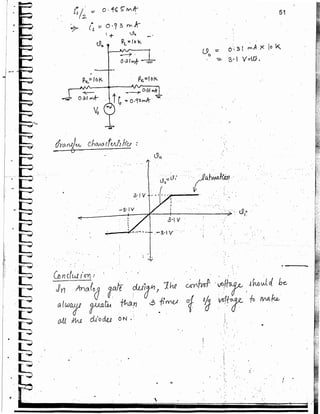 51
i₂/2 = 0.465mA
⇒ i₂ = 0.93 mA
R_L=10K
0.31mA
V₀ = 0.31 mA × 10 K
= 3.1 Volt.
R_C=10K R_C=10K
0.31mA 0.31mA
i₂ = 0.93mA
V₀
Transfer characteristics :
V₀
V₀=Vᵢ Saturation
3.1 V
-3.1V
3.1 V
Vᵢ
-3.1 V
Conclusion :
In Analog gate design, The control voltage should be
always greater than 3 times of i/p voltage to make
all the diodes ON.